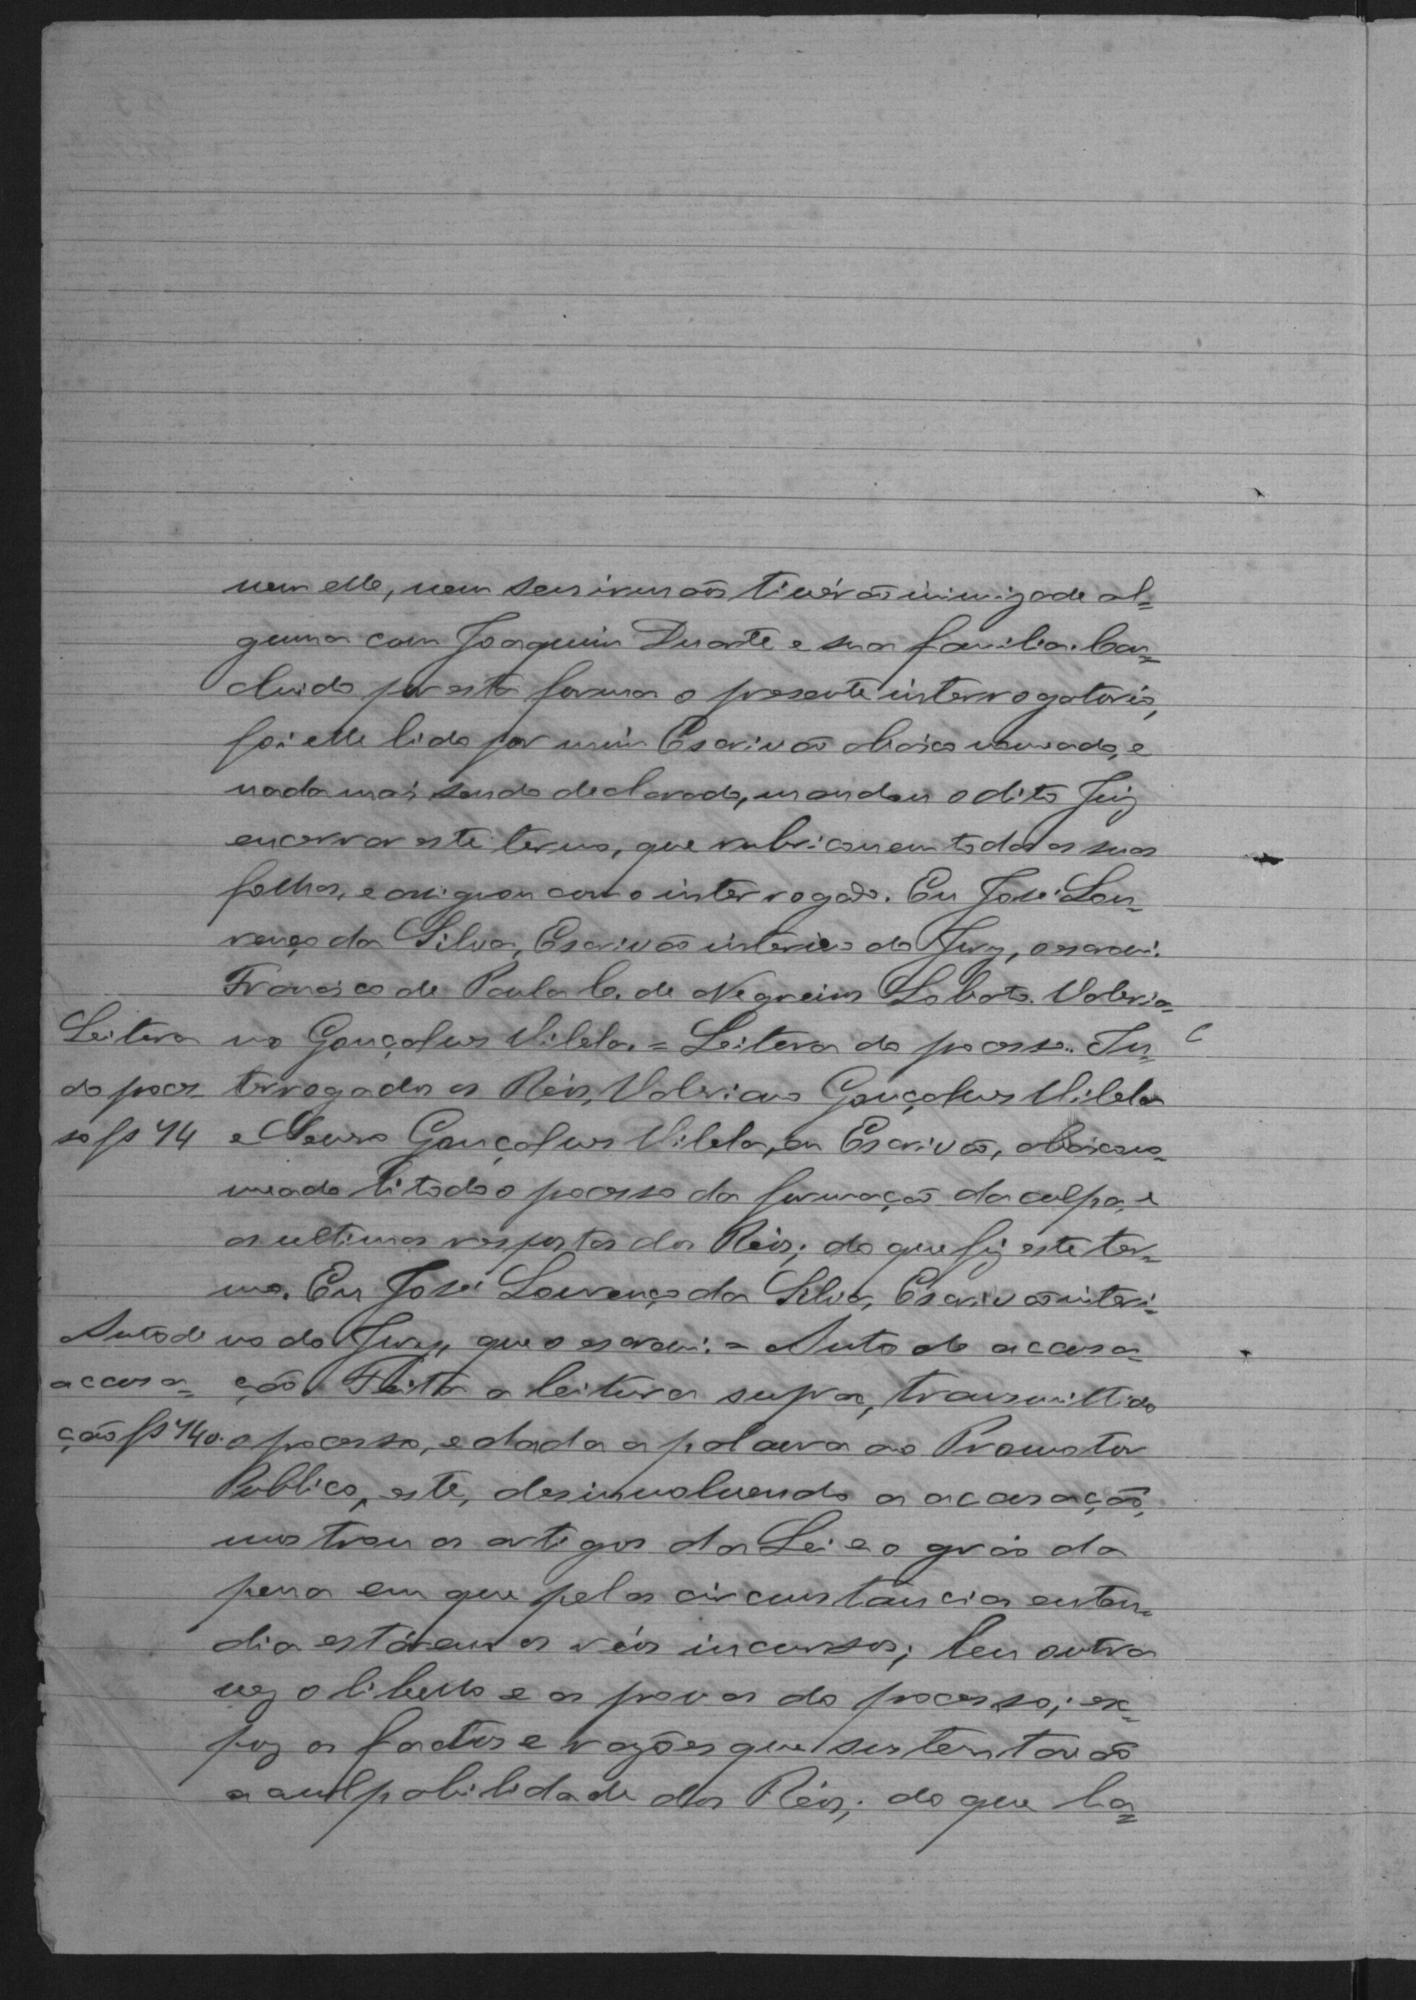 nem elle, nem seus irmãos tiverão inimizade al=
guma com Joaquim Duarte e sua familia. Con=
cluido por esta forma o presente interrogatorio,
foi elle lido por mim Escrivão abaixo nomeado, e
nada mais sendo declarado, mandou o dito Juiz
encerrar este termo, que rubricou em todas as suas
folhas, e assignou com o interrogado. Eu José Lou=
renço da Silva, Escrivão interino do Jury, o escrevi.
Francisco de Paula C. de Negreiros Lobato. Valeria=
Leitera
no Gonçalves Villela. = Leitera do pocesso. In=
do poces=
terrogados os Réos, Valeriano Gonçalves Villela
so fs 74
e Gonçalves Villela, eu Escrivão, abaixo no=
meado li todo o pocesso da formação da culpa, e
as ultimas respostas dos Réos; do que fiz este ter=
mo. Eu José Lourenço da Silva, Escrivão interi=
Auto de
no do Jury, que o escrevi. = Auto de accusa=
accusa=
ção. Feita a leitura supra, transmittido
ção fs 74 v.
o pocesso, e dada a palavra ao Promotor
Publico, este, desinvolvendo a accusação,
mostrou os artigos da Lei e o gráo da
pena em que pelas circunstancias enten=
dia estarem os réos incursos; leu outra
vez o libello e as provas do pocesso; ex=
poz os factos e razões que sustentavão
a culpabilidade dos Réos; do que la=